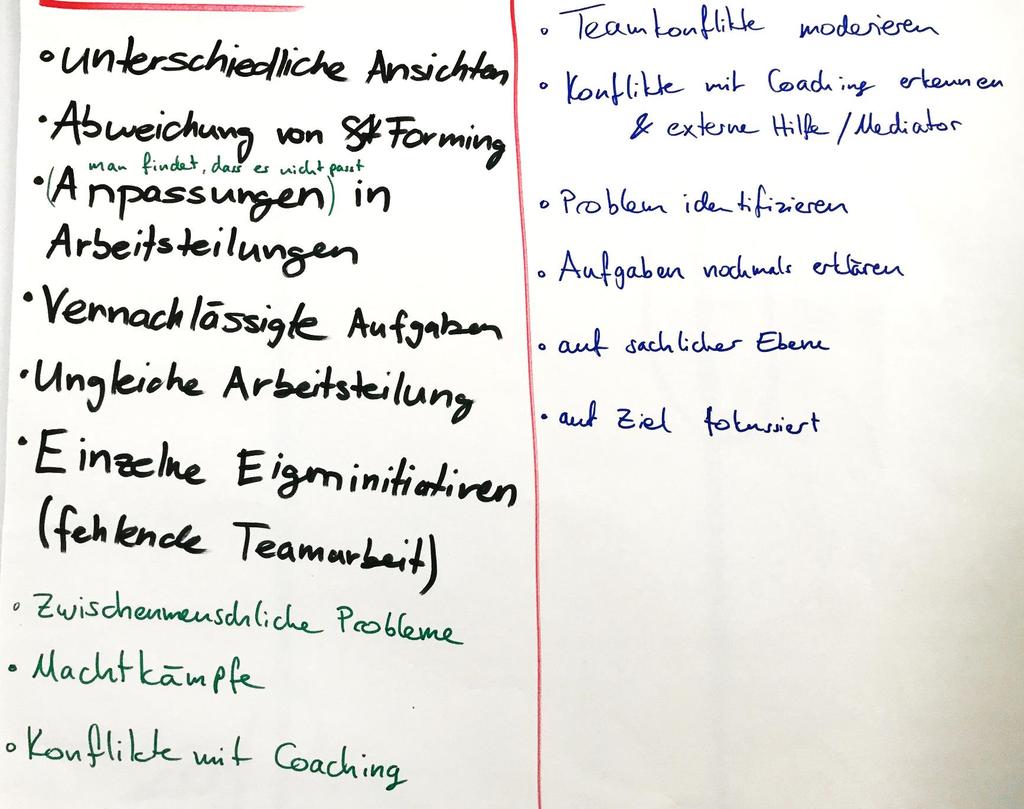 • Unterschiedliche Ansichten
• Abweichung von Forming
man findet, dass es nicht passt
• (Anpassungen) in
Arbeitsteilungen
• Vernachlässigte Aufgaben
• Ungleiche Arbeitsteilung
• Einzelne Eigeninitiativen
(fehlende Teamarbeit)
• Zwischenmenschliche Probleme
• Machtkämpfe
• Konflikte mit Coaching
• Teamkonflikte moderieren
• Konflikte mit Coaching erkennen
& externe Hilfe / Mediator
• Problem identifizieren
• Aufgaben nochmals erklären
• auf sachlicher Ebene
• auf Ziel fokussiert